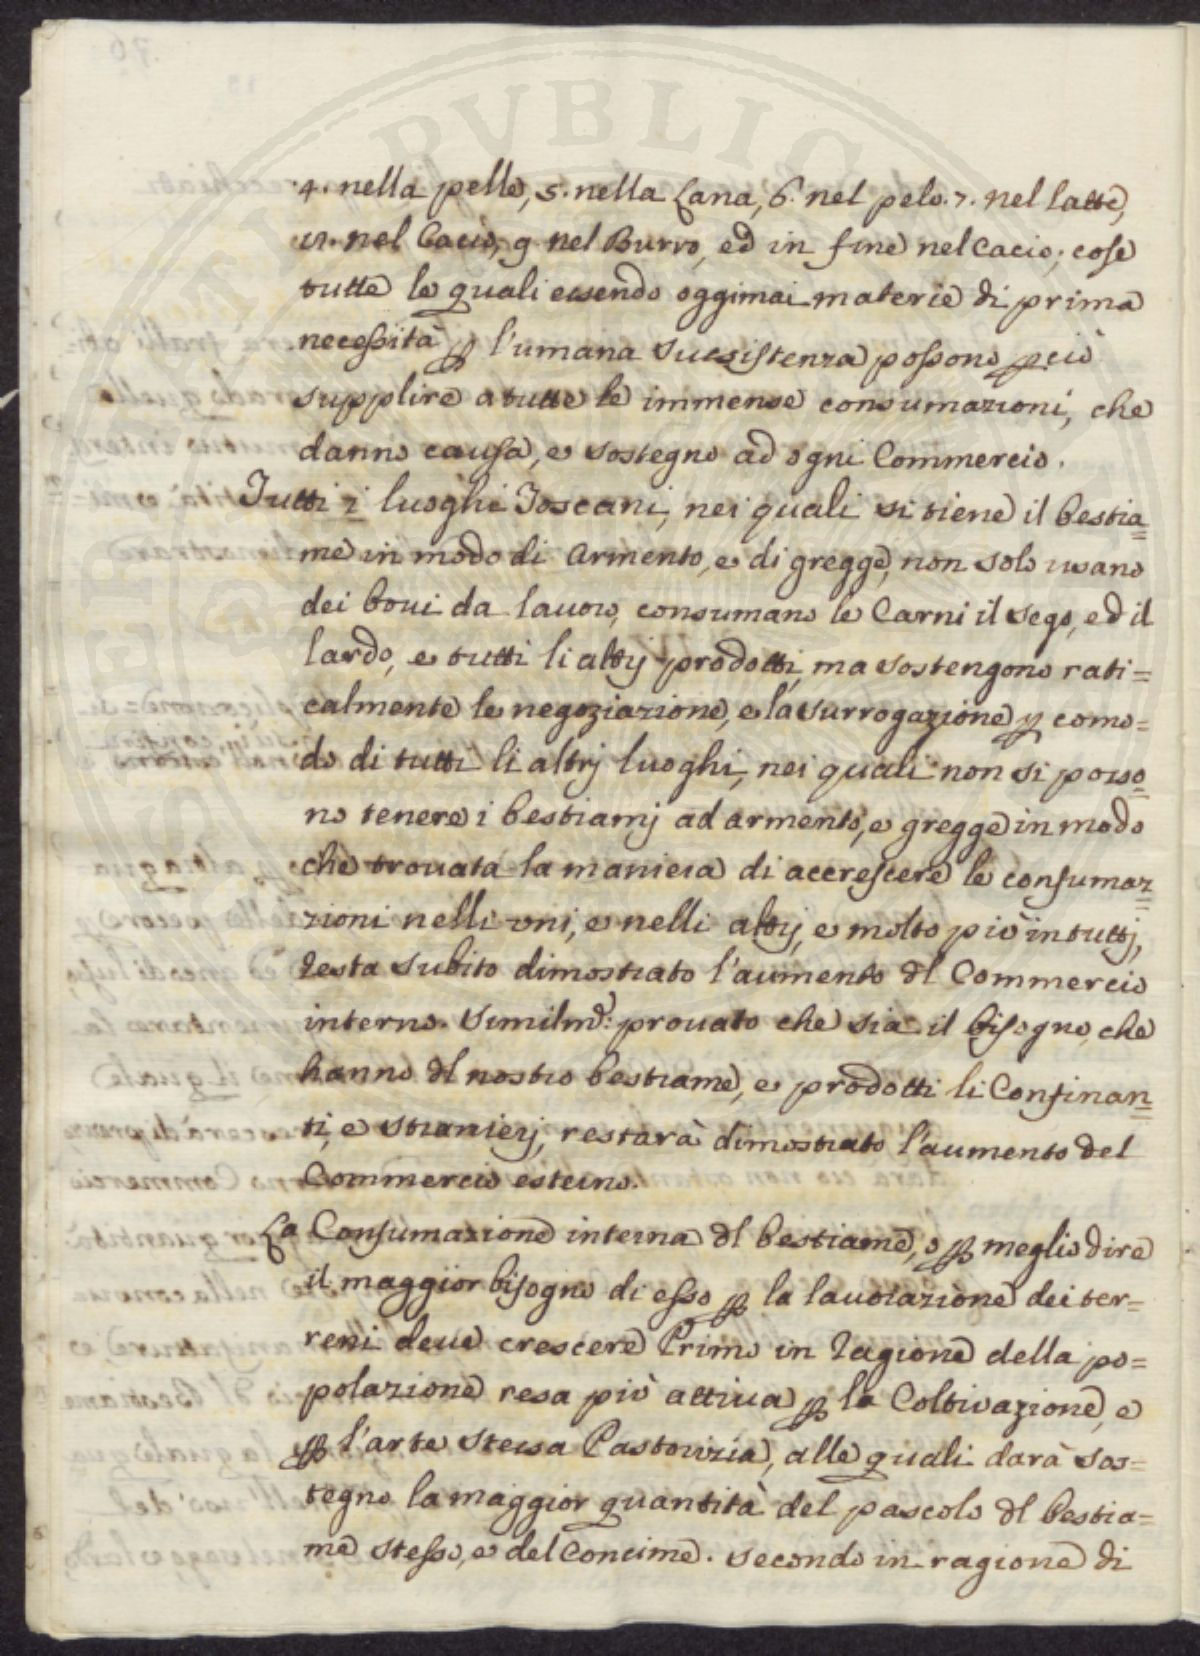 4. nella pelle, 5. nella Lana, 6. nel pelo. 7. nel latte,
nel Cacio, 9. nel Burro, ed in fine nel Cacio; cose
tutte le quali essendo oggimai materie di prima
necessità p l'umana sussistenza possono pciò
supplire a tutte le immense consumazioni, che
danno causa, e sostegno ad ogni Commercio.
Tutti i luoghi Toscani, nei quali si tiene il bestia=
me in modo di Armento, e di gregge, non solo usano
dei bovi da lavoro, consumano le Carni il sego, ed il
lardo, e tutti li altrj prodotti, ma sostengono rati=
calmente le negoziazione, e la surrogazione p como=
do di tutti li altrj luoghi, nei quali non si posso=
no tenere i bestiamj ad armento, e gregge in modo
che trovata la maniera di accrescere le consumaz=
zioni nelli uni, e nelli altrj, e molto più in tuttj,
resta subito dimostrato l'aumento dl Commercio
interno. Similmẽ: provato che sia il bisogno, che
hanno dl nostro bestiame, e prodotti li Confinan=
ti, e stranierj, restarà dimostrato l'aumento del
Commercio esterno.
La Consumazione interna dl bestiame, o p meglio dire
il maggior bisogno di esso p la lavorazione dei ter=
reni deve crescere Primo in ragione della po=
polazione resa più attiva p la Coltivazione, e
p l'arte stessa Pastorizia, alle quali darà sos=
tegno la maggior quantità del pascolo dl bestia=
me stesso, e del Concime. Secondo in ragione di